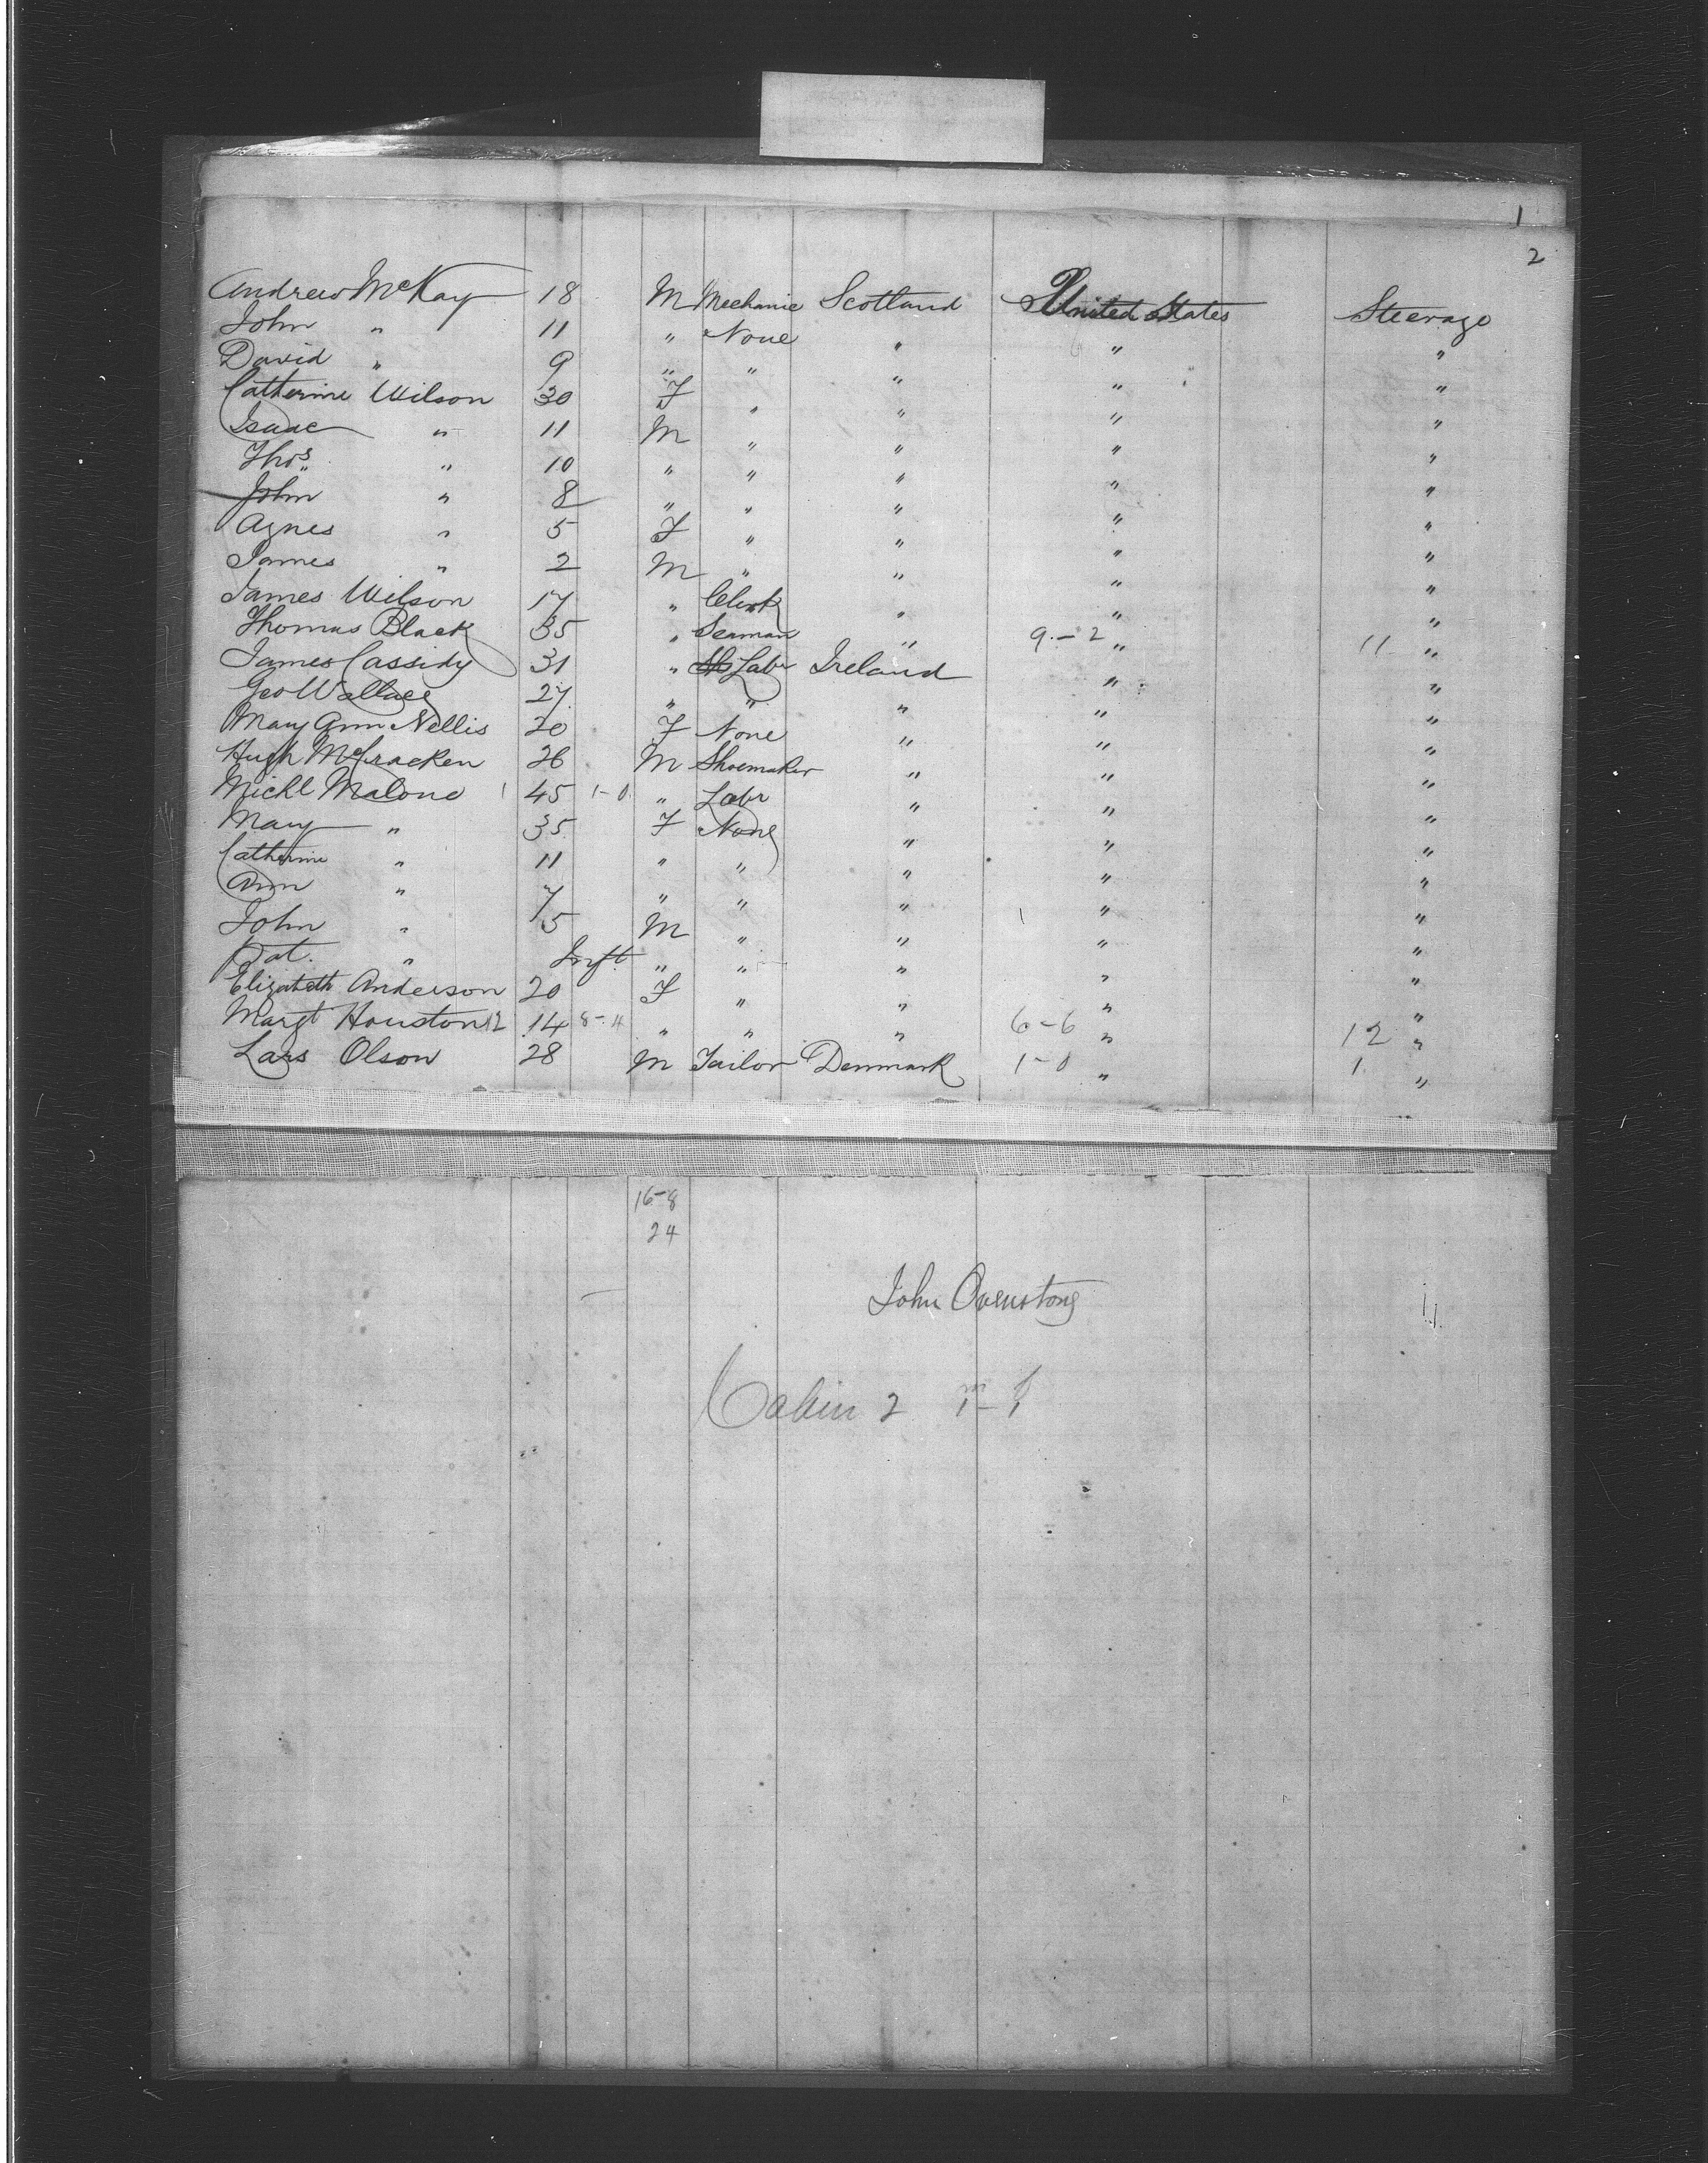 1
2
Andrew McKay 18 M Mechanic Scotland United States Steerage
John " 11 " None " " "
David " 9 " " " " "
Catherine Wilson 30 F " " " "
Isaac " 11 M " " " "
Thos " 10 " " " " "
John " 8 " " " " "
Agnes " 5 F " " " "
James " 2 M " " " "
James Wilson 17 " Clerk " " "
Thomas Black 35 " Seaman " 9-2 " 11 "
James Cassidy 31 " Labr Ireland " "
Geo Wallace 27 " " " " "
Mary Ann Nellis 20 F None " " "
Hugh McCracken 26 M Shoemaker " " "
Michl Malone 1 45 1-0 " Labr " " "
Mary " 35 F None " " "
Catherine " 11 " " " " "
Ann " 7 " " " " "
John " 5 M " " " "
Pat. " Inft " " " " "
Elizabeth Anderson 20 F " " " "
Margt Houston 12 14 8-4 " " " 6-6 " 12 "
Lars Olson 28 M Tailor Denmark 1-0 " 1 "
16-8
24
John Ovenstone
11
Cabin 2 m f
1-1